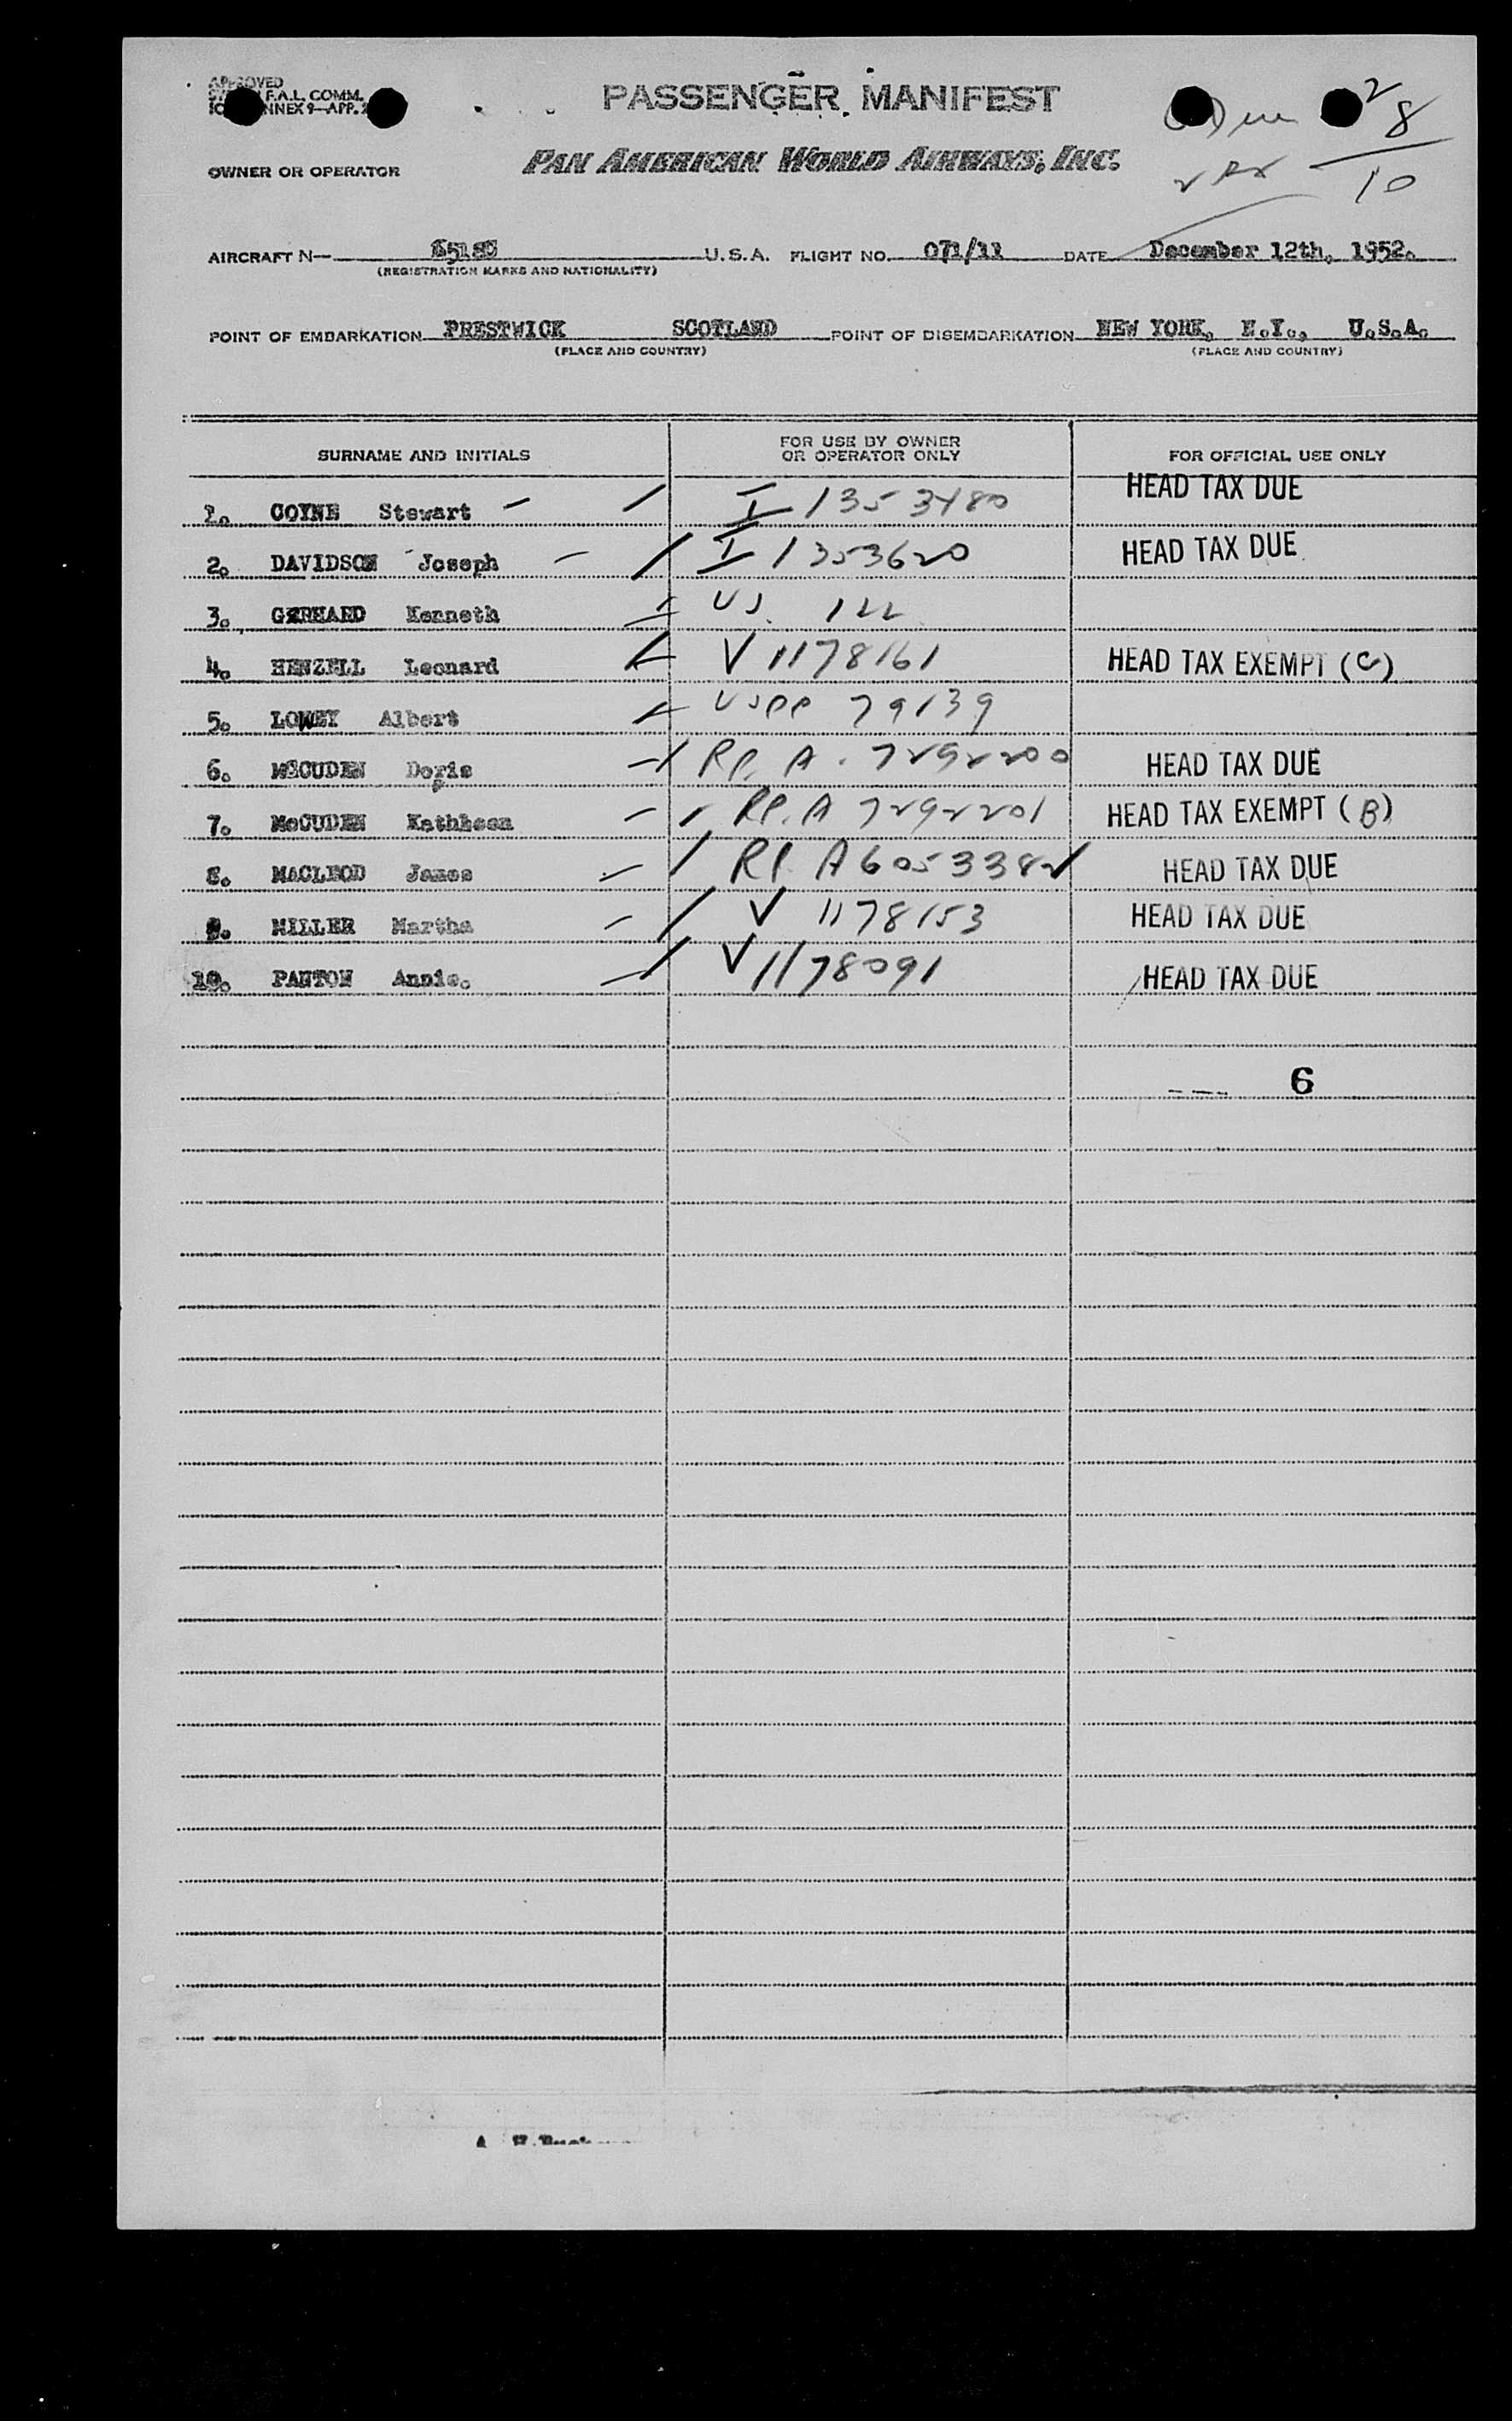 APPROVED
F.A.L. COMM.
ANNEX 9—APP. 2
PASSENGER MANIFEST
2/8
10
OWNER OR OPERATOR PAN AMERICAN WORLD AIRWAYS, INC.
AIRCRAFT N— U.S.A. FLIGHT NO. 071/11 DATE December 12th, 1952.
(REGISTRATION MARKS AND NATIONALITY)
POINT OF EMBARKATION PRESTWICK SCOTLAND POINT OF DISEMBARKATION NEW YORK, N.Y., U.S.A.
(PLACE AND COUNTRY) (PLACE AND COUNTRY)
SURNAME AND INITIALS FOR USE BY OWNER OR OPERATOR ONLY FOR OFFICIAL USE ONLY
1. COYNE Stewart I 1353480 HEAD TAX DUE
2. DAVIDSON Joseph I 1353620 HEAD TAX DUE
3. GERHARD Kenneth US 122
4. HENZELL Leonard V 1178161 HEAD TAX EXEMPT (C)
5. LOWEY Albert USPP 79139
6. McCUDEN Doris RP. A. 7292200 HEAD TAX DUE
7. McCUDEN Kathleen RP. A 7292201 HEAD TAX EXEMPT (B)
8. MACLEOD James RP. A6053382 HEAD TAX DUE
9. MILLER Martha V 1178153 HEAD TAX DUE
10. PANTON Annie. V 1178091 HEAD TAX DUE
6